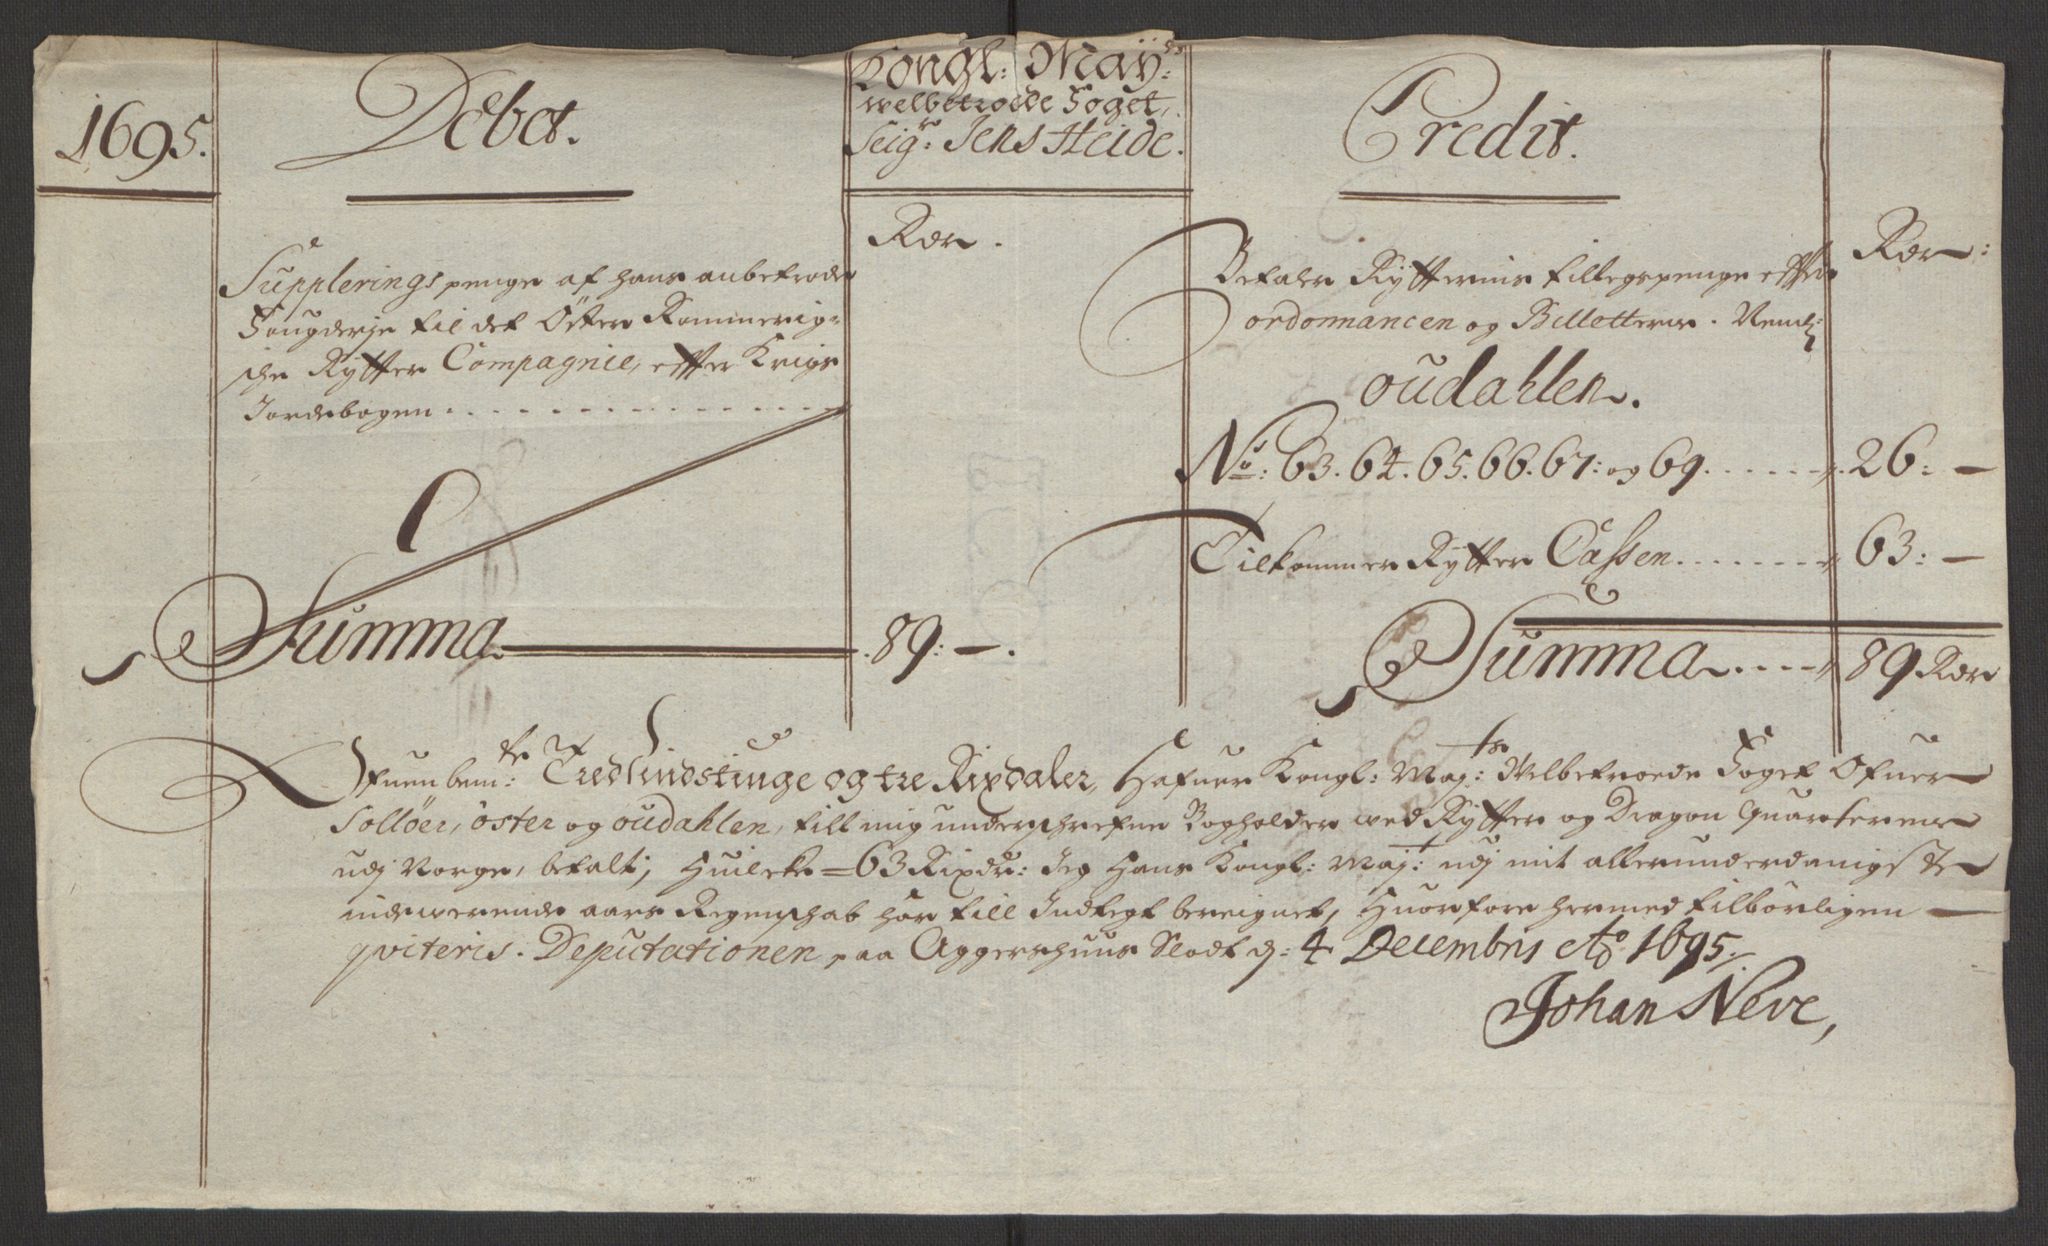 1695.
Debet.
Kongl: May:ss
welbetroede Foget,
Seigr: Jens Heide.
Credit.
Rdr.
Rdr:
Supplerings penge af hans anbetrode
Fougderje til det Öster Rommerig-
sche Rytter Compagnie, effter Krigs
Jordebogen
Summa 89: —.
Betaler Rytternis tillegspenge effter
ordonnancen og Billetterne. Neml:
oudahlen.
No: 63. 64. 65. 66. 67: og 69. 26: —
Tilkommer Rytter Cassen 63: —
Summa 89 Rdr
Ofuenbemte: Tredsindstiuge og tre Rixdaler, Hafuer Kongl: Maj:ts Velbetroede Foget Ofuer
Sollöer, öster og oudahlen, till mig underschrefne Bogholder ved Rytter og Dragon quarterene
udj Norge, betalt, Huilcke = 63 Rixdr: Jeg Hans Kongl: Majt: udj mit allerunderdanigste
indeverende aars Regenschab hör till Indtegt bereignet, Huorfore hermed tilbörligen —
qviteris. Deputationen paa Aggershuus Slodt d: 4 Decembris Ao 1695.
Johan Neve,